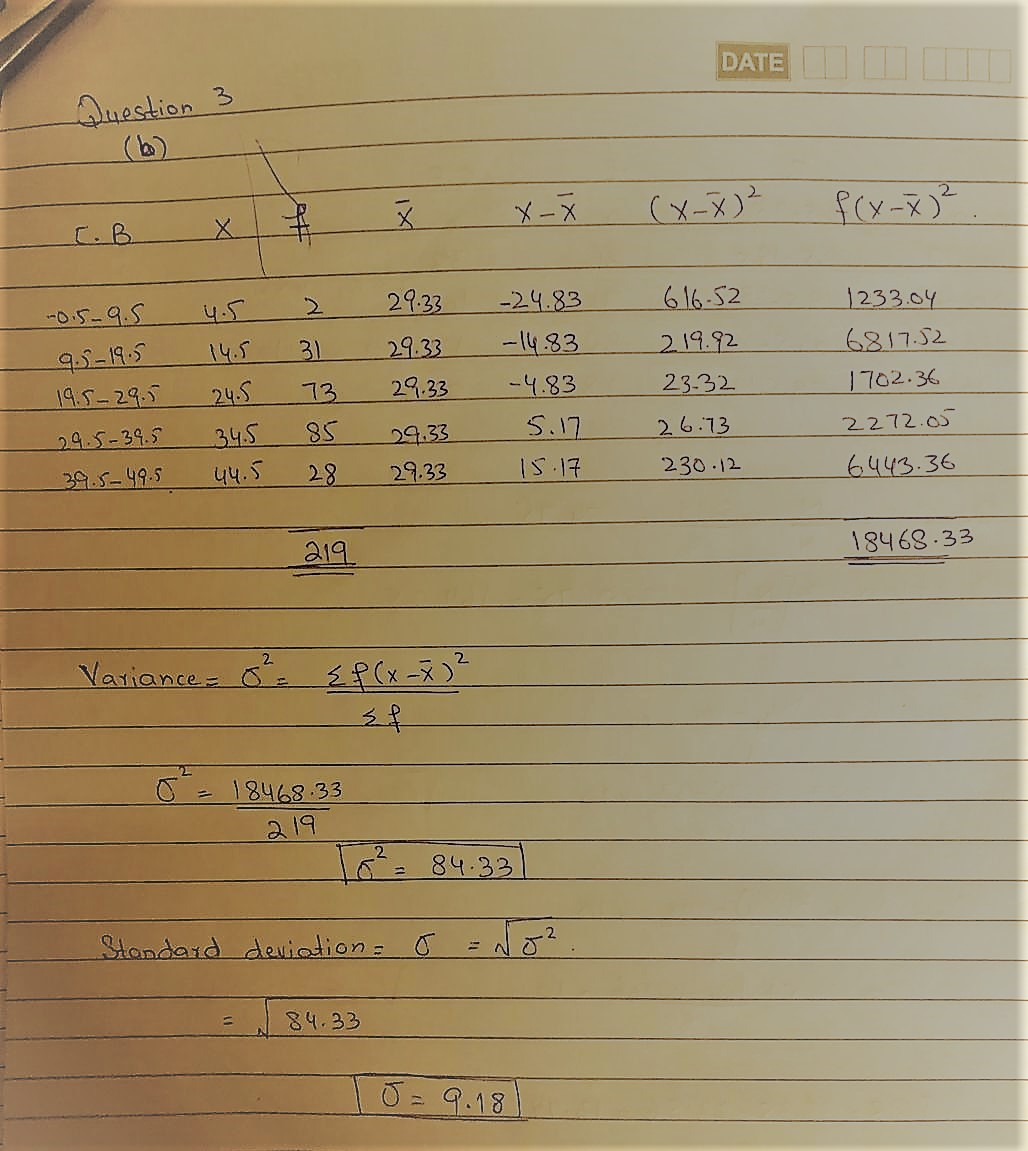 DATE
Question 3
(b)
C.B X f x̄ x-x̄ (x-x̄)² f(x-x̄)².
-0.5-9.5 4.5 2 29.33 -24.83 616.52 1233.04
9.5-19.5 14.5 31 29.33 -14.83 219.92 6817.52
19.5-29.5 24.5 73 29.33 -4.83 23.32 1702.36
29.5-39.5 34.5 85 29.33 5.17 26.73 2272.05
39.5-49.5 44.5 28 29.33 15.17 230.12 6443.36
219 18468.33
Variance = σ² = Σf(x-x̄)²
Σf
σ² = 18468.33
219
σ² = 84.33
Standard deviation = σ = √σ².
= √84.33
σ = 9.18